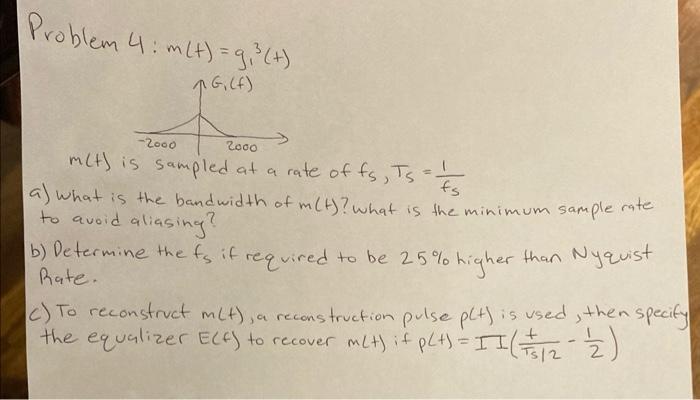 Problem 4: m(t) = g₁³(t)
G₁(f)
-2000 2000
m(t) is sampled at a rate of fs, Ts = 1/fs
a) what is the bandwidth of m(t)? what is the minimum sample rate
to avoid aliasing?
b) Determine the fs if required to be 25% higher than Nyquist
Rate.
c) To reconstruct m(t), a reconstruction pulse p(t) is used, then specify
the equalizer E(f) to recover m(t) if p(t) = Π(t/(Ts/2) - 1/2)